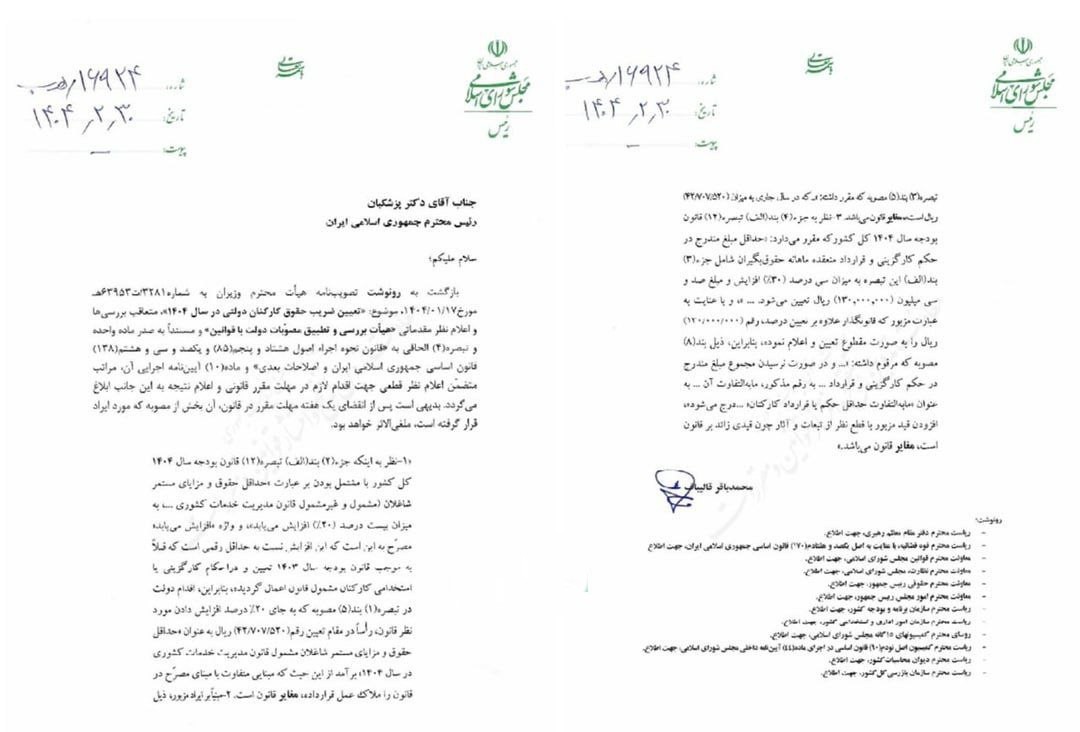 جمهوری اسلامی ایران
مجلس شورای اسلامی
رئیس
بسمه تعالی
شماره: ۱۶۹۲۴/
تاریخ: ۱۴۰۴/۲/۳۰
پیوست: —
جناب آقای دکتر پزشکیان
رئیس محترم جمهوری اسلامی ایران
سلام علیکم؛
بازگشت به رونوشت تصویب‌نامه هیأت محترم وزیران به شماره ۳۲۸۱/ت۶۳۹۵۳هـ
مورخ ۱۴۰۴/۰۱/۱۷، موضوع: «تعیین ضریب حقوق کارکنان دولتی در سال ۱۴۰۴»، متعاقب بررسی‌ها
و اعلام نظر مقدماتی «هیأت بررسی و تطبیق مصوّبات دولت با قوانین» و مستنداً به صدر ماده واحده
و تبصره(۴) الحاقی به «قانون نحوه اجراء اصول هشتاد و پنجم(۸۵) و یکصد و سی و هشتم(۱۳۸)
قانون اساسی جمهوری اسلامی ایران و اصلاحات بعدی» و ماده(۱۰) آیین‌نامه اجرایی آن، مراتب
متضمّن اعلام نظر قطعی جهت اقدام لازم در مهلت مقرر قانونی و اعلام نتیجه به این جانب ابلاغ
می‌گردد. بدیهی است پس از انقضای یک هفته مهلت مقرر در قانون، آن بخش از مصوبه که مورد ایراد
قرار گرفته است، ملغی‌الاثر خواهد بود.
«۱-نظر به اینکه جزء(۲) بند(الف) تبصره(۱۲) قانون بودجه سال ۱۴۰۴
کل کشور با مشتمل بودن بر عبارت «حداقل حقوق و مزایای مستمر
شاغلان (مشمول و غیرمشمول قانون مدیریت خدمات کشوری ...، به
میزان بیست درصد (۲۰٪) افزایش می‌یابد»، و واژه «افزایش می‌یابد»
مصرّح به این است که این افزایش نسبت به حداقل رقمی است که قبلاً
به موجب قانون بودجه سال ۱۴۰۳ تعیین و در احکام کارگزینی یا
استخدامی کارکنان مشمول قانون اعمال گردیده، بنابراین، اقدام دولت
در تبصره(۱) بند(۵) مصوبه که به جای ۲۰٪ درصد افزایش دادن مورد
نظر قانون، رأساً در مقام تعیین رقم(۴۲/۷۰۷/۵۲۰) ریال به عنوان «حداقل
حقوق و مزایای مستمر شاغلان مشمول قانون مدیریت خدمات کشوری
در سال ۱۴۰۴» برآمد از این حیث که مبنایی متفاوت با مبنای مصرّح در
قانون را ملاک عمل قرارداده، مغایر قانون است. ۲-مبنیاً بر ایراد مزبور، ذیل
جمهوری اسلامی ایران
مجلس شورای اسلامی
رئیس
بسمه تعالی
شماره: ۱۶۹۲۴/
تاریخ: ۱۴۰۴/۲/۳۰
پیوست: —
تبصره(۳) بند(۵) مصوبه که مقرر داشته: «که در سال جاری به میزان (۴۲/۷۰۷/۵۲۰)
ریال است»، مغایر قانون می‌باشد. ۳- نظر به جزء(۴) بند(الف) تبصره(۱۲) قانون
بودجه سال ۱۴۰۴ کل کشور که مقرر می‌دارد: «حداقل مبلغ مندرج در
حکم کارگزینی و قرارداد منعقده ماهانه حقوق‌بگیران شامل جزء(۳)
بند(الف) این تبصره به میزان سی درصد (۳۰٪) افزایش و مبلغ صد و
سی میلیون (۱۳۰,۰۰۰,۰۰۰) ریال تعیین می‌شود. ... »، و با عنایت به
عبارت مزبور که قانونگذار علاوه بر تعیین درصد، رقم (۱۲۰/۰۰۰/۰۰۰)
ریال را به صورت مقطوع تعیین و اعلام نموده، بنابراین، ذیل بند(۸)
مصوبه که مرقوم داشته: «... و در صورت نرسیدن مجموع مبلغ مندرج
در حکم کارگزینی و قرارداد ... به رقم مذکور، مابه‌التفاوت آن ... به
عنوان «مابه‌التفاوت حداقل حکم یا قرارداد کارکنان» ...درج می‌شود»،
افزودن قید مزبور با قطع نظر از تبعات و آثار چون قیدی زائد بر قانون
است، مغایر قانون می‌باشد.»
محمدباقر قالیباف
رونوشت:
- ریاست محترم دفتر مقام معظم رهبری، جهت اطلاع.
- ریاست محترم قوه قضائیه، با عنایت به اصل یکصد و هفتادم(۱۷۰) قانون اساسی جمهوری اسلامی ایران، جهت اطلاع.
- معاونت محترم قوانین مجلس شورای اسلامی، جهت اطلاع.
- معاونت محترم نظارت، مجلس شورای اسلامی، جهت اطلاع.
- معاونت محترم حقوقی رییس جمهور، جهت اطلاع.
- معاونت محترم امور مجلس رییس جمهور، جهت اطلاع.
- ریاست محترم سازمان برنامه و بودجه کشور، جهت اطلاع.
- ریاست محترم سازمان امور اداری و استخدامی کشور، جهت اطلاع.
- روسای محترم کمیسیونهای ۱۵گانه مجلس شورای اسلامی، جهت اطلاع.
- ریاست محترم کمیسیون اصل نودم(۹۰) قانون اساسی در اجرای ماده(۴۴) آیین‌نامه داخلی مجلس شورای اسلامی، جهت اطلاع.
- ریاست محترم دیوان محاسبات کشور، جهت اطلاع.
- ریاست محترم سازمان بازرسی کل کشور، جهت اطلاع.